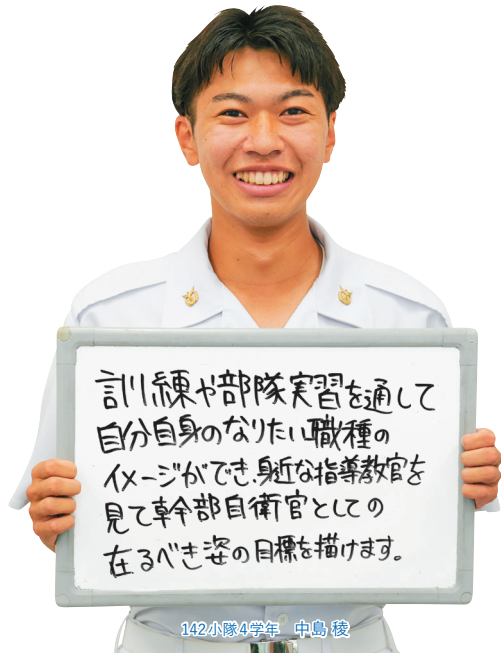 訓練や部隊実習を通して
自分自身のなりたい職種の
イメージができ、身近な指導教官を
見て幹部自衛官としての
在るべき姿の目標を描けます。
142小隊4学年　中島 稜